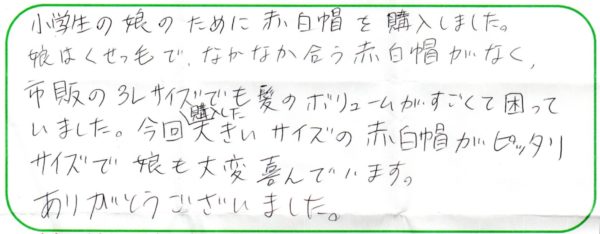 小学生の娘のために赤白帽を購入しました。
娘はくせっ毛で、なかなか合う赤白帽がなく、
市販の3Lサイズでも髪のボリュームがすごくて困って
いました。今回購入した大きいサイズの赤白帽がピッタリ
サイズで娘も大変喜んでいます。
ありがとうございました。